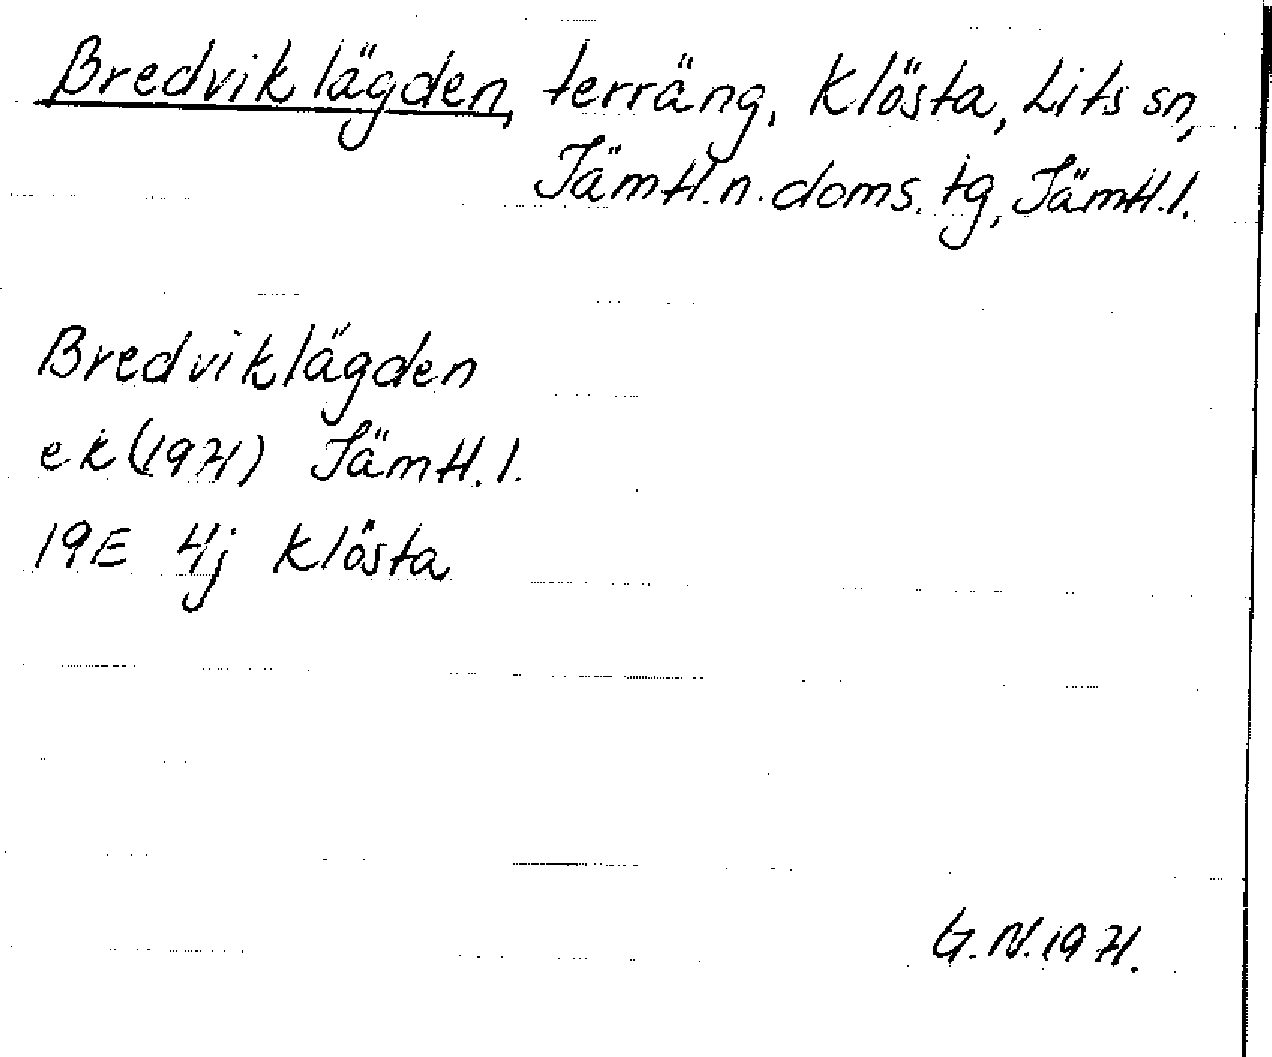 Bredviklägden, terräng, Klösta, Lits sn,
Jämtl.n.doms.tg, Jämtl.l.
Bredviklägden
ek(1971) Jämtl.l.
19E 4j Klösta
G.N.1971.